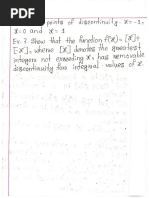 points of discontinuity. x=-1,
x=0 and x=1
Ex. 7. Show that the function f(x)=[x]+
[-x], where [x] denotes the greatest
integer not exceeding x, has removable
discontinuity for integral values of x.